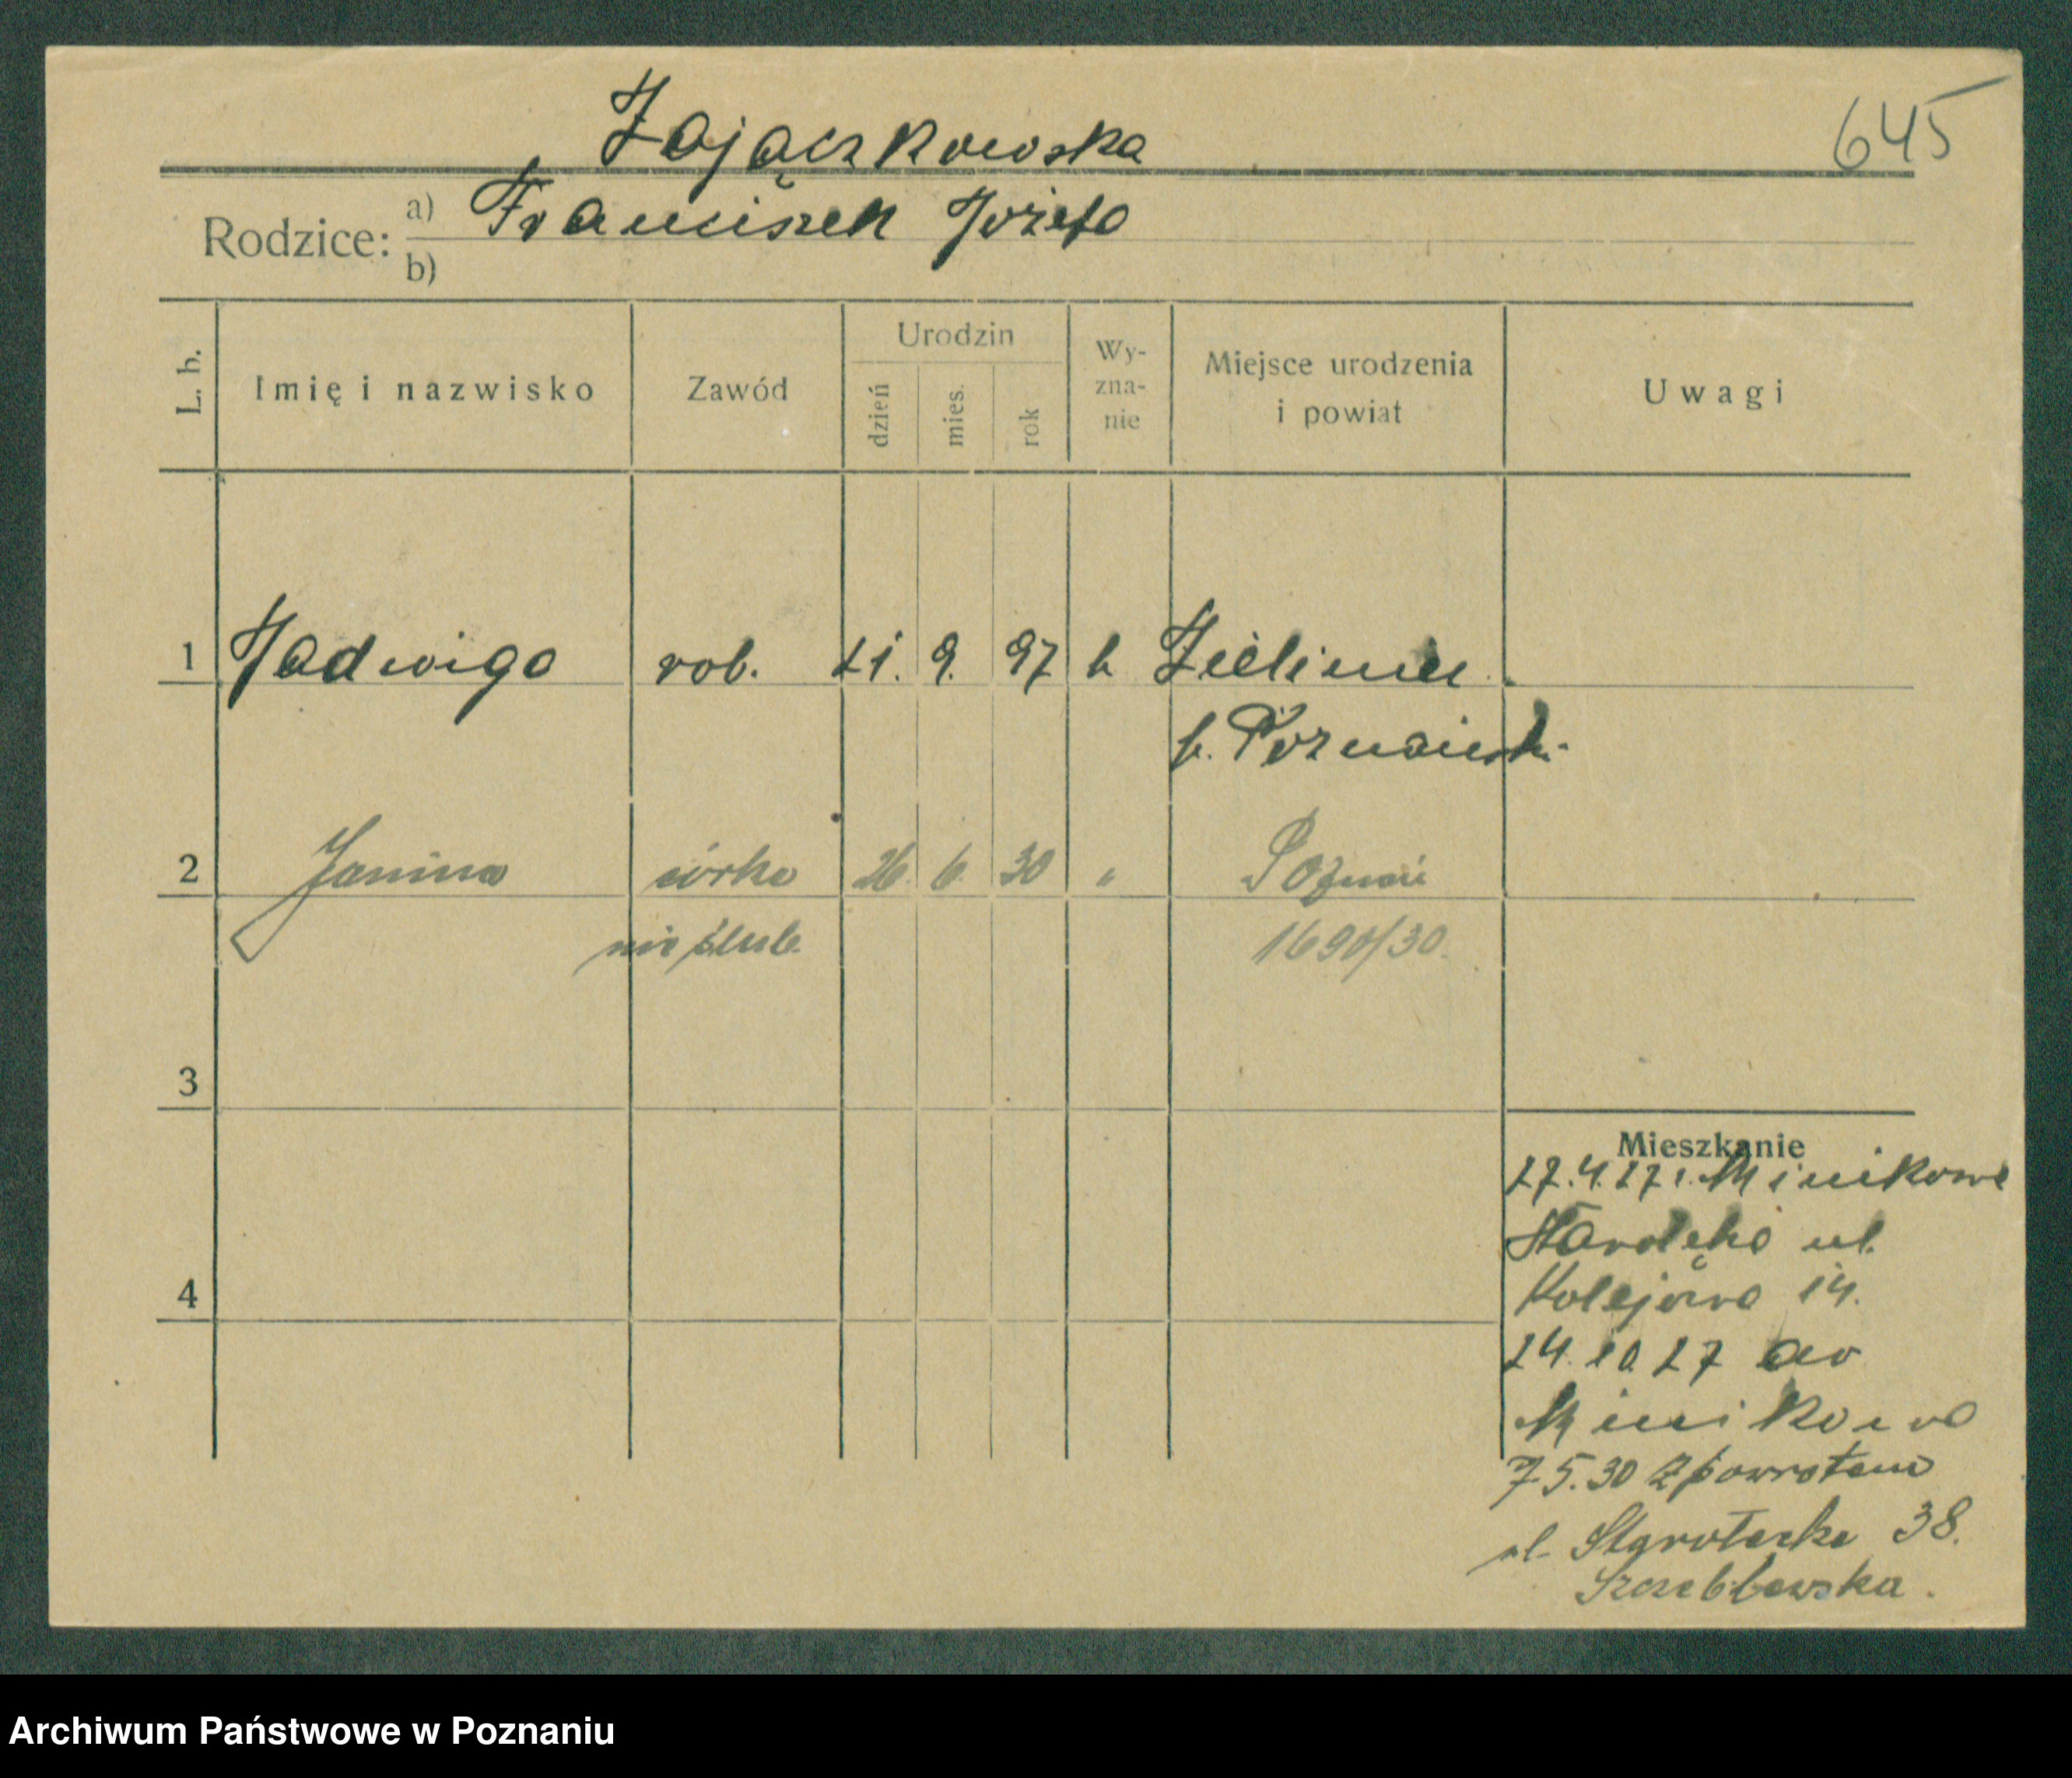 Zajączkowska
645
Rodzice: a) Franciszek Józefa
b)
L. b. Imię i nazwisko Zawód Urodzin dzień mies. rok Wy-zna-nie Miejsce urodzenia i powiat Uwagi
1 Jadwiga rob. 21. 9. 97 k Zieliniec
p. Poznański
2 Janina córka 26. 6. 30 " Poznań
nieślub. 1690/30.
3
Mieszkanie
27.4.27 r. Minikowo
Starołęka ul.
4
Kolejowa 14.
24.10 27 do
Minikowa
7.5.30 z powrotem
ul. Starołecka 38.
Archiwum Państwowe w Poznaniu